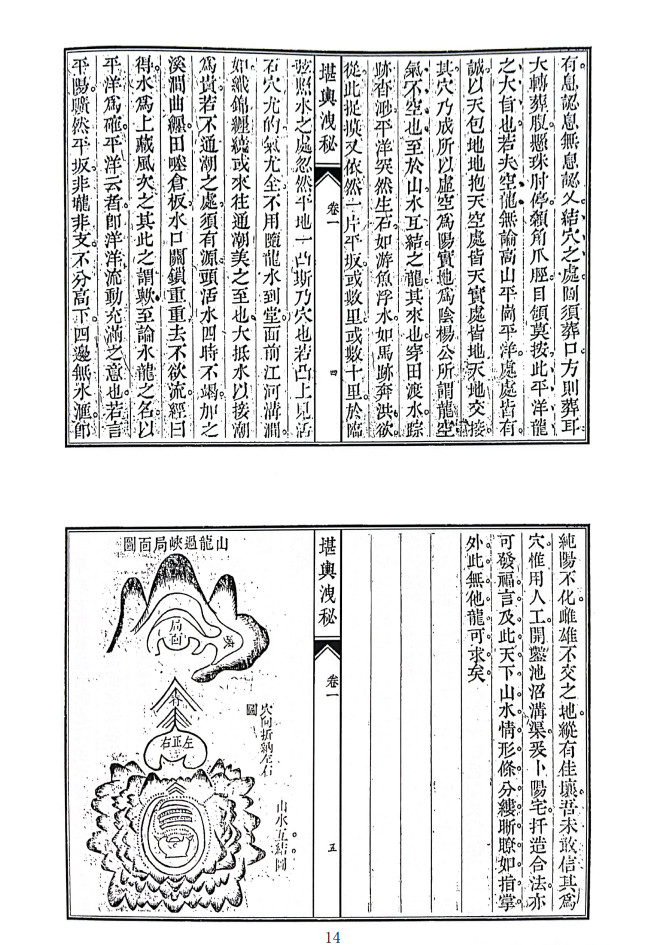 有息認息無息認父結穴之處闗須葬口方則葬耳
大轉葬腹懸珠肘停額角爪脛目頷莫按此平洋龍
之大旨也若夫空龍無論高山平崗平洋處處皆有
誠以天包地地抱天空處皆天實處皆地天地交接
其穴乃成所以虛空爲陽實地爲陰楊公所謂龍空
氣不空也至於山水互結之龍其來也穿田渡水踪
跡杳渺平洋突然生石如游魚浮水如馬跡奔洪欲
從此捉摸又依然一片平坂或數里或數十里於臨
堪輿洩秘
卷一
四
弦照水之處忽然平地一凸斯乃穴也若凸上見活
石穴尤的氣尤全不用隨龍水到堂面前江河溝澗
如織錦纏繞或來往通潮美之至也大抵水以接潮
爲貴若不通潮之處須有源頭活水四時不竭加之
溪澗曲纒田塍倉板水口關鎖重重去不欲流經曰
得水爲上藏風次之其此之謂歟至論水龍之名以
平洋爲確平洋云者卽洋洋流動充滿之意也若言
平陽曠然平坂非壠非支不分高下四邊無水滙卽
純陽不化雌雄不交之地縱有佳壤吾未敢信其爲
穴惟用人工開鑿池沼溝渠爰卜陽宅扦造合法亦
可發福言及此天下山水情形條分縷晰瞭如指掌
外此無他龍可求矣
堪輿洩秘
卷一
五
山龍過峽局面圖
局面
穴向折納左右
圖
左正右
山水互結圖
14